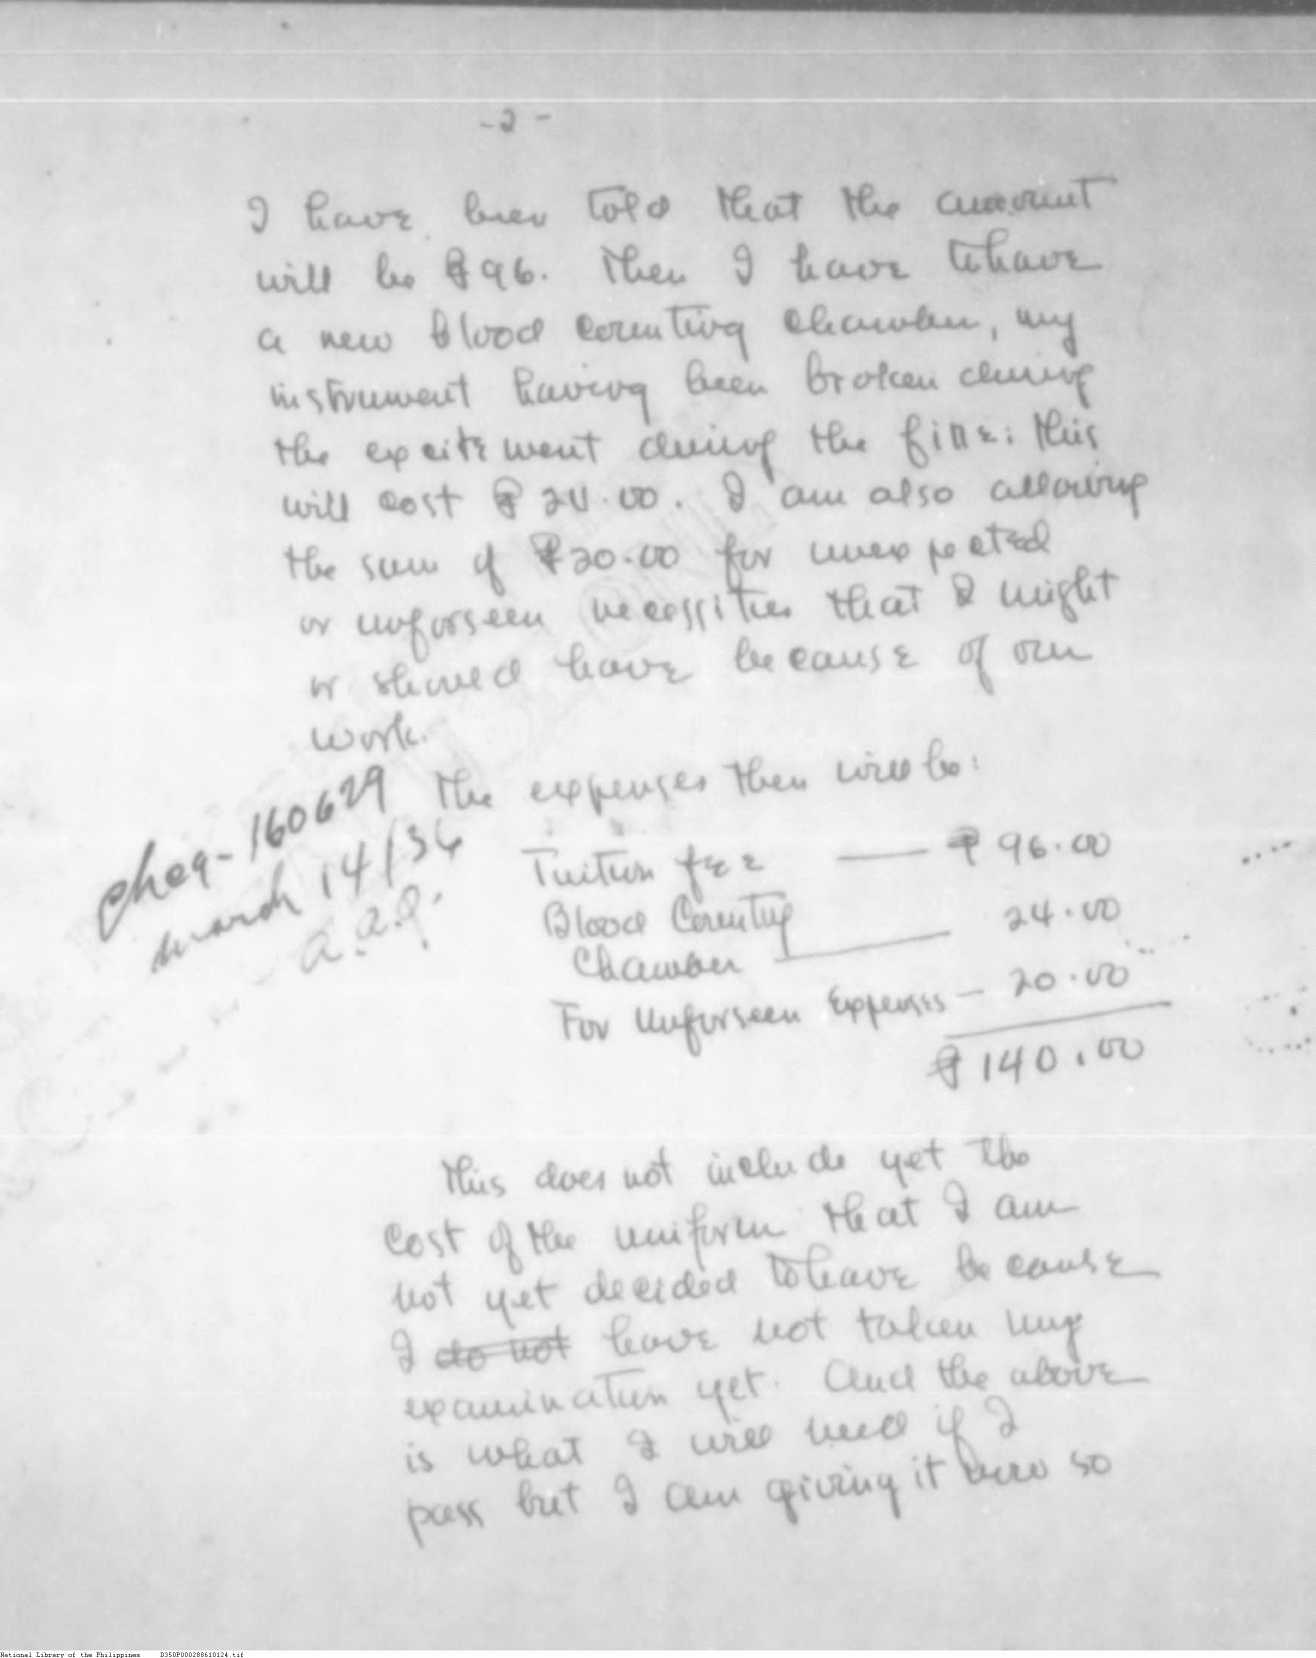 -2-
I have been told that the amount
will be ₱96. Then I have to have
a new blood counting chamber, my
instrument having been broken during
the excitement during the fire: this
will cost ₱24.00. I am also allowing
the sum of ₱20.00 for unexpected
or unforseen necessities that I might
or should have because of our
work.
The expenses then will be:
Tuition fee — ₱96.00
Blood Counting
Chamber — 24.00
For Unforseen Expenses — 20.00
₱140.00
Cheq-160629
March 14/36
This does not include yet the
cost of the uniform that I am
not yet decided to have because
I do not have not taken my
examination yet. And the above
is what I will need if I
pass but I am giving it now so
National Library of the Philippines D350P000288610124.tif